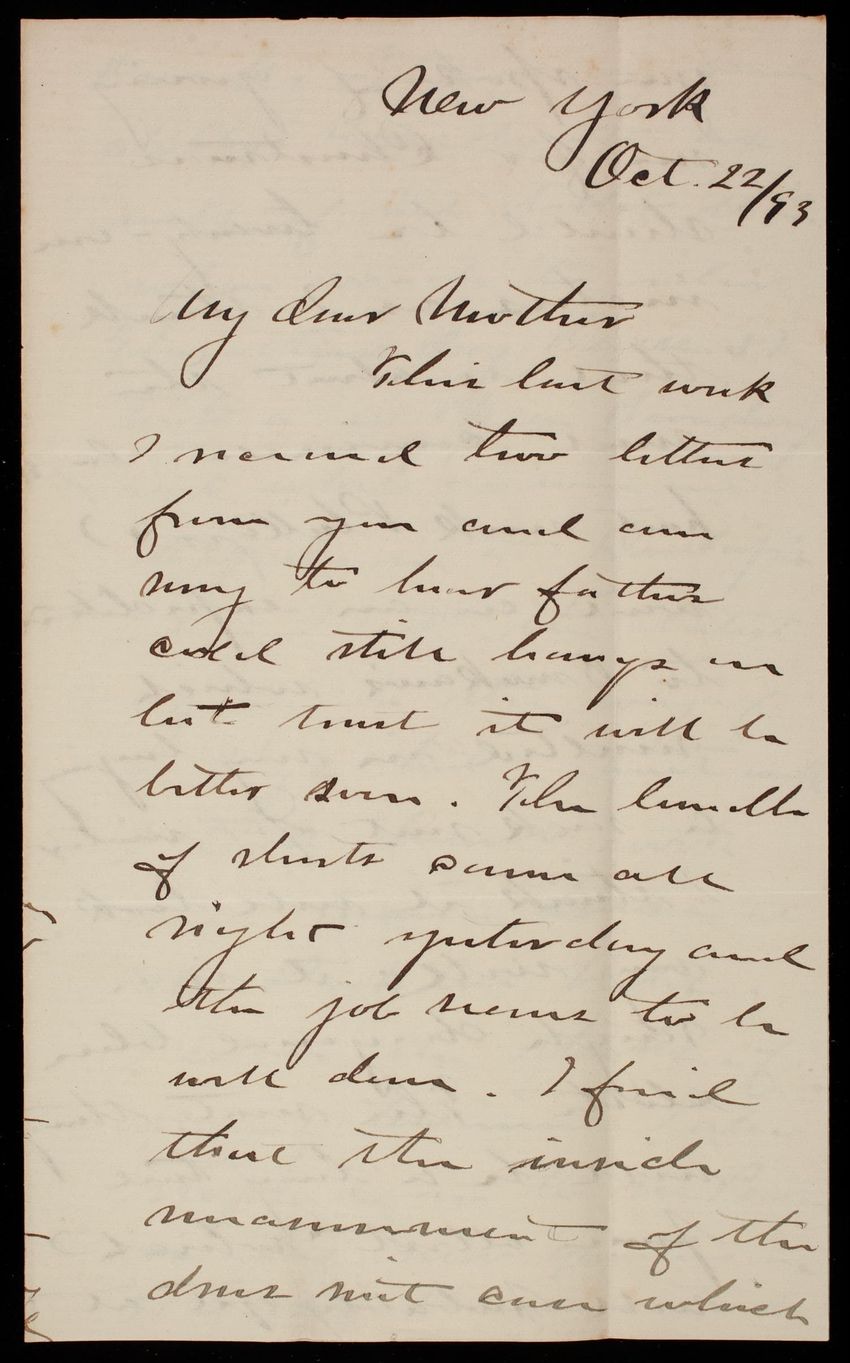 New York
Oct. 22/93
My dear Mother
This last week
I received two letters
from you and am
sorry to hear fathers
cold still hangs on
but trust it will be
better soon. The bundle
of shirts came all
right yesterday and
the job seems to be
well done. I find
that the inside
measurement of the
does not come which